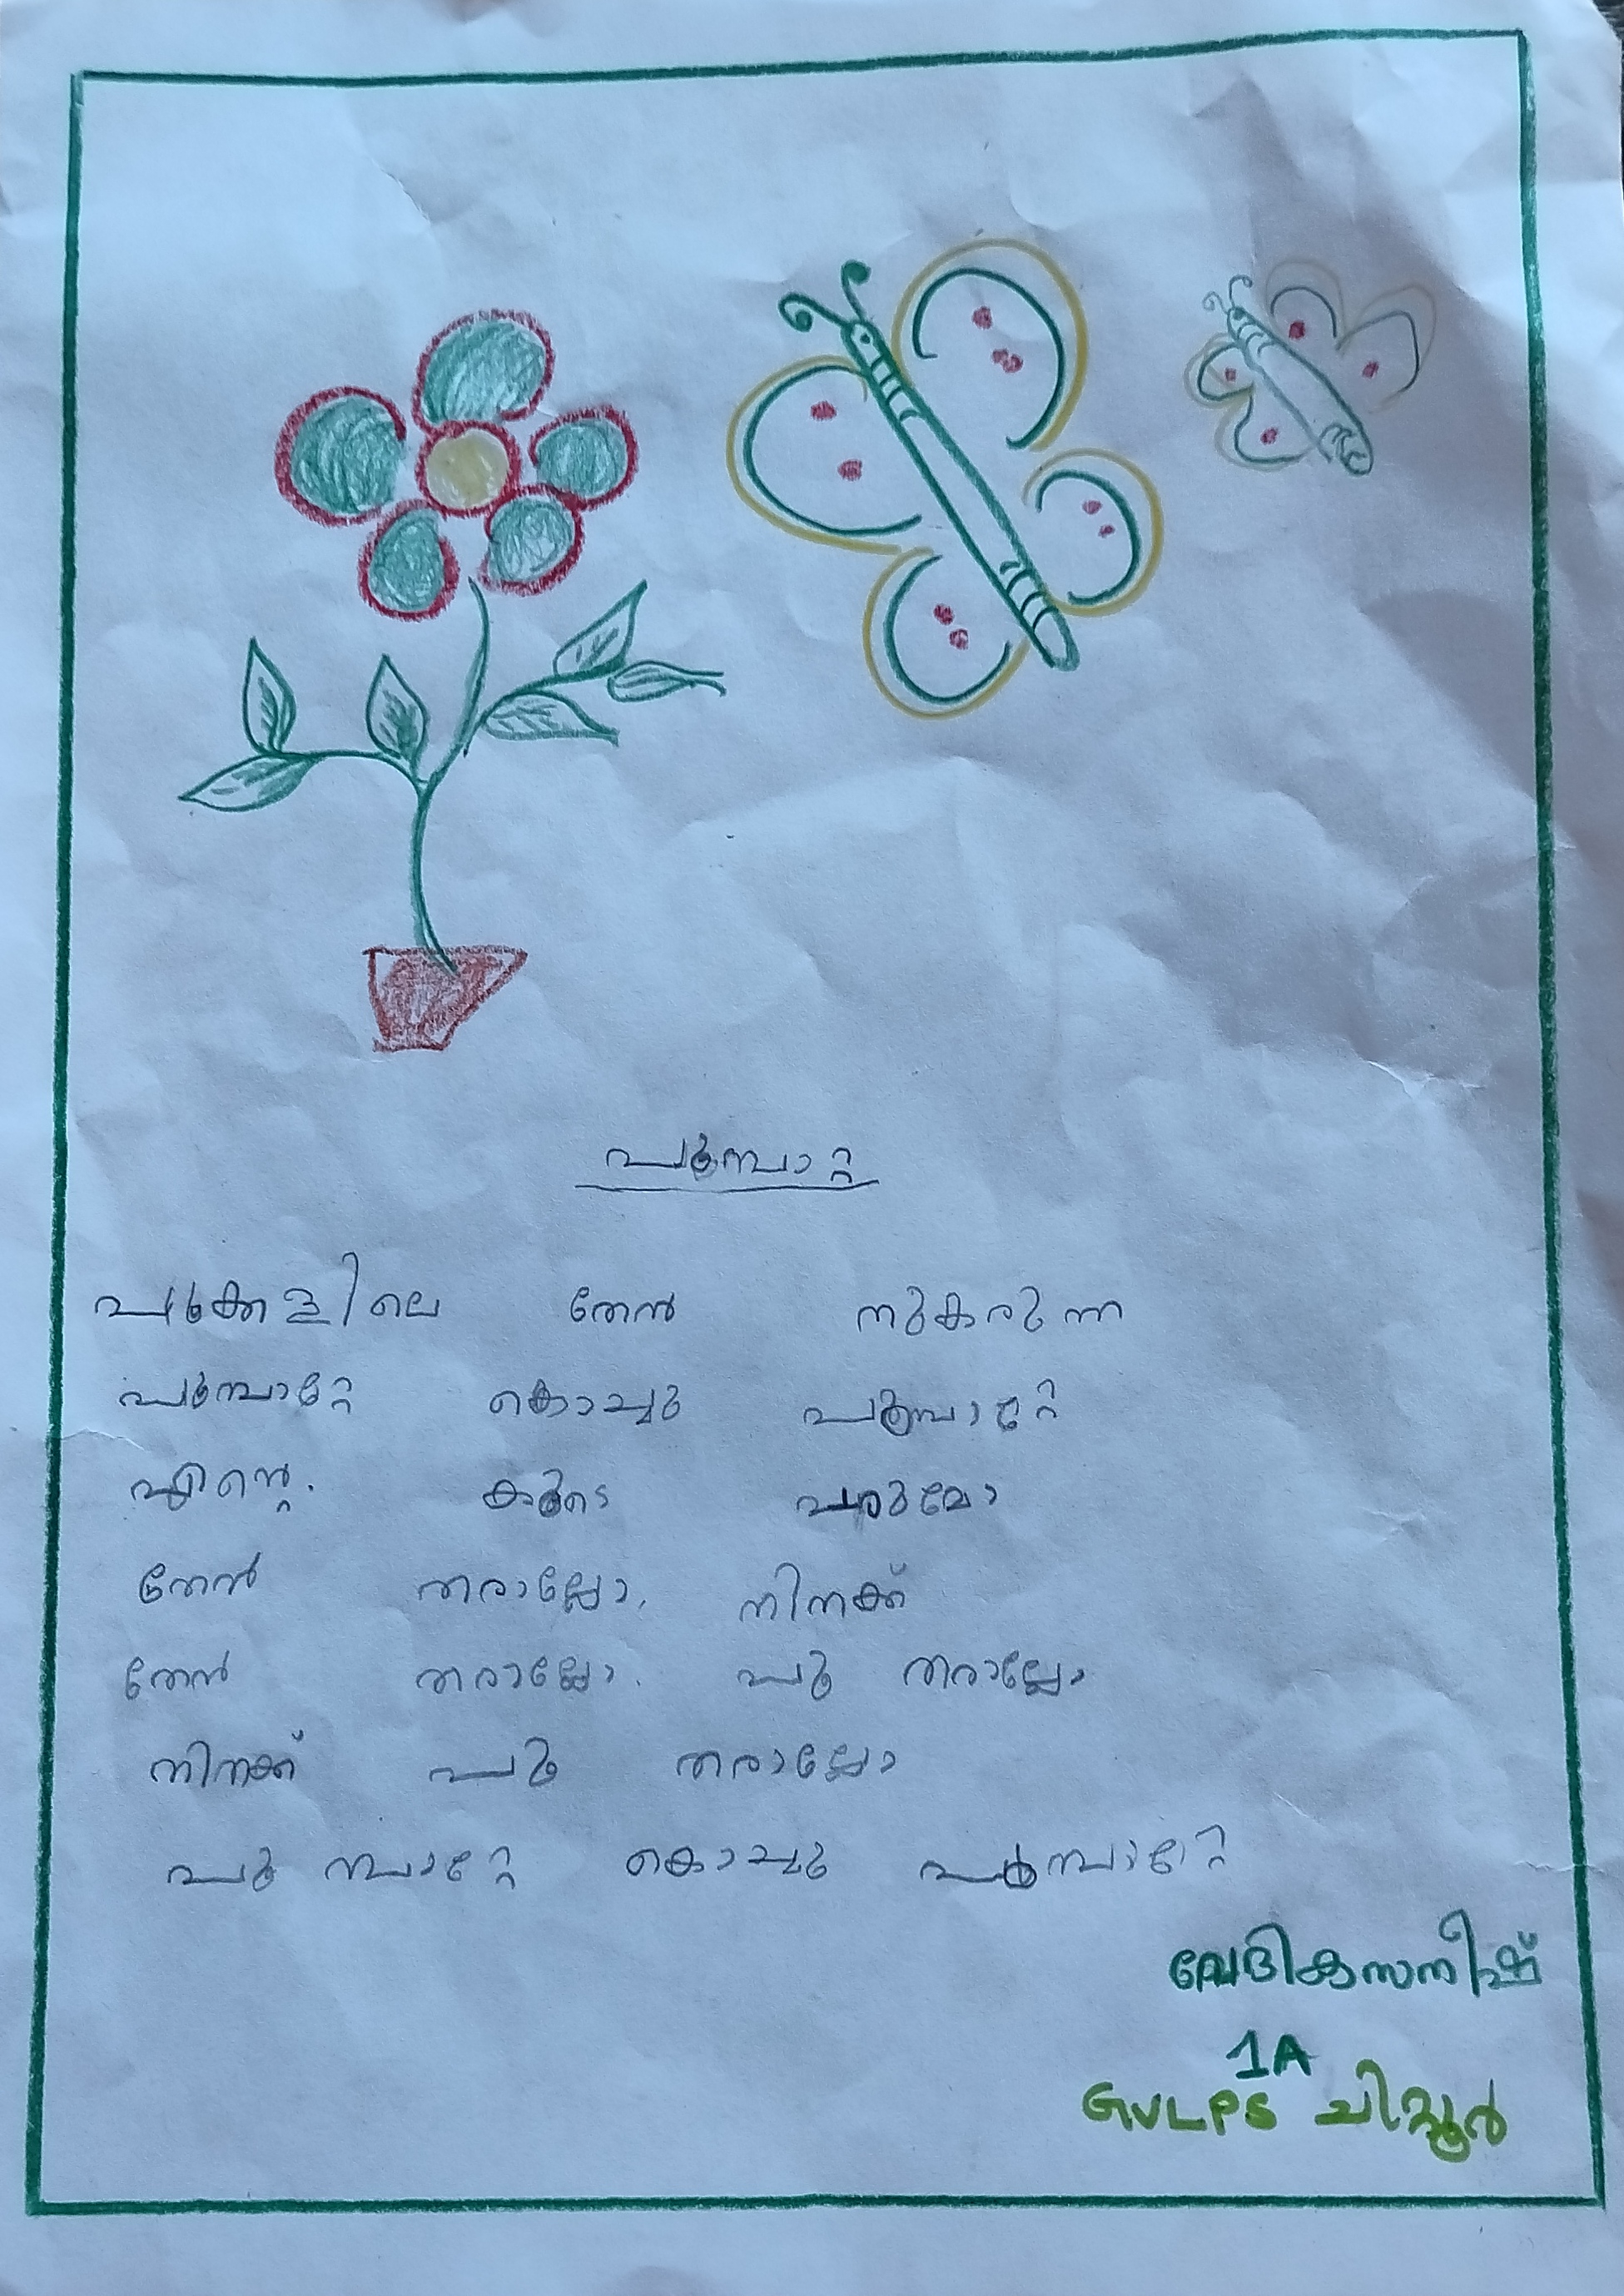 പൂമ്പാറ്റ
പൂക്കളിലെ തേൻ നുകരുന്ന
പൂമ്പാറ്റേ കൊച്ചു പൂമ്പാറ്റേ
എന്റെ. കൂടെ പറുമോ
തേൻ തരാല്ലോ. നിനക്ക്
തേൻ തരാല്ലോ. പൂ തരാല്ലോ
നിനക്ക് പൂ തരാല്ലോ
പൂ മ്പാറ്റേ കൊച്ചു പൂമ്പാറ്റേ
വേദികസനീഷ്
1A
GVLPS ചിറ്റൂർ